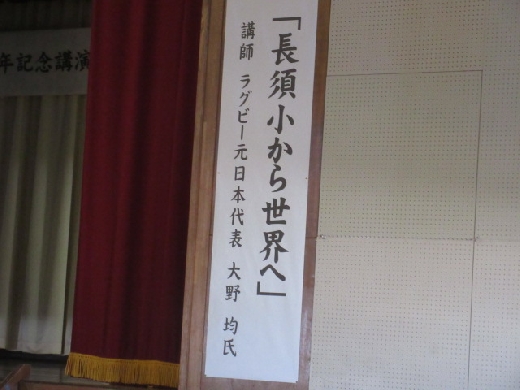 「長須小から世界へ」
講師 ラグビー元日本代表 大野 均氏
年記念講演